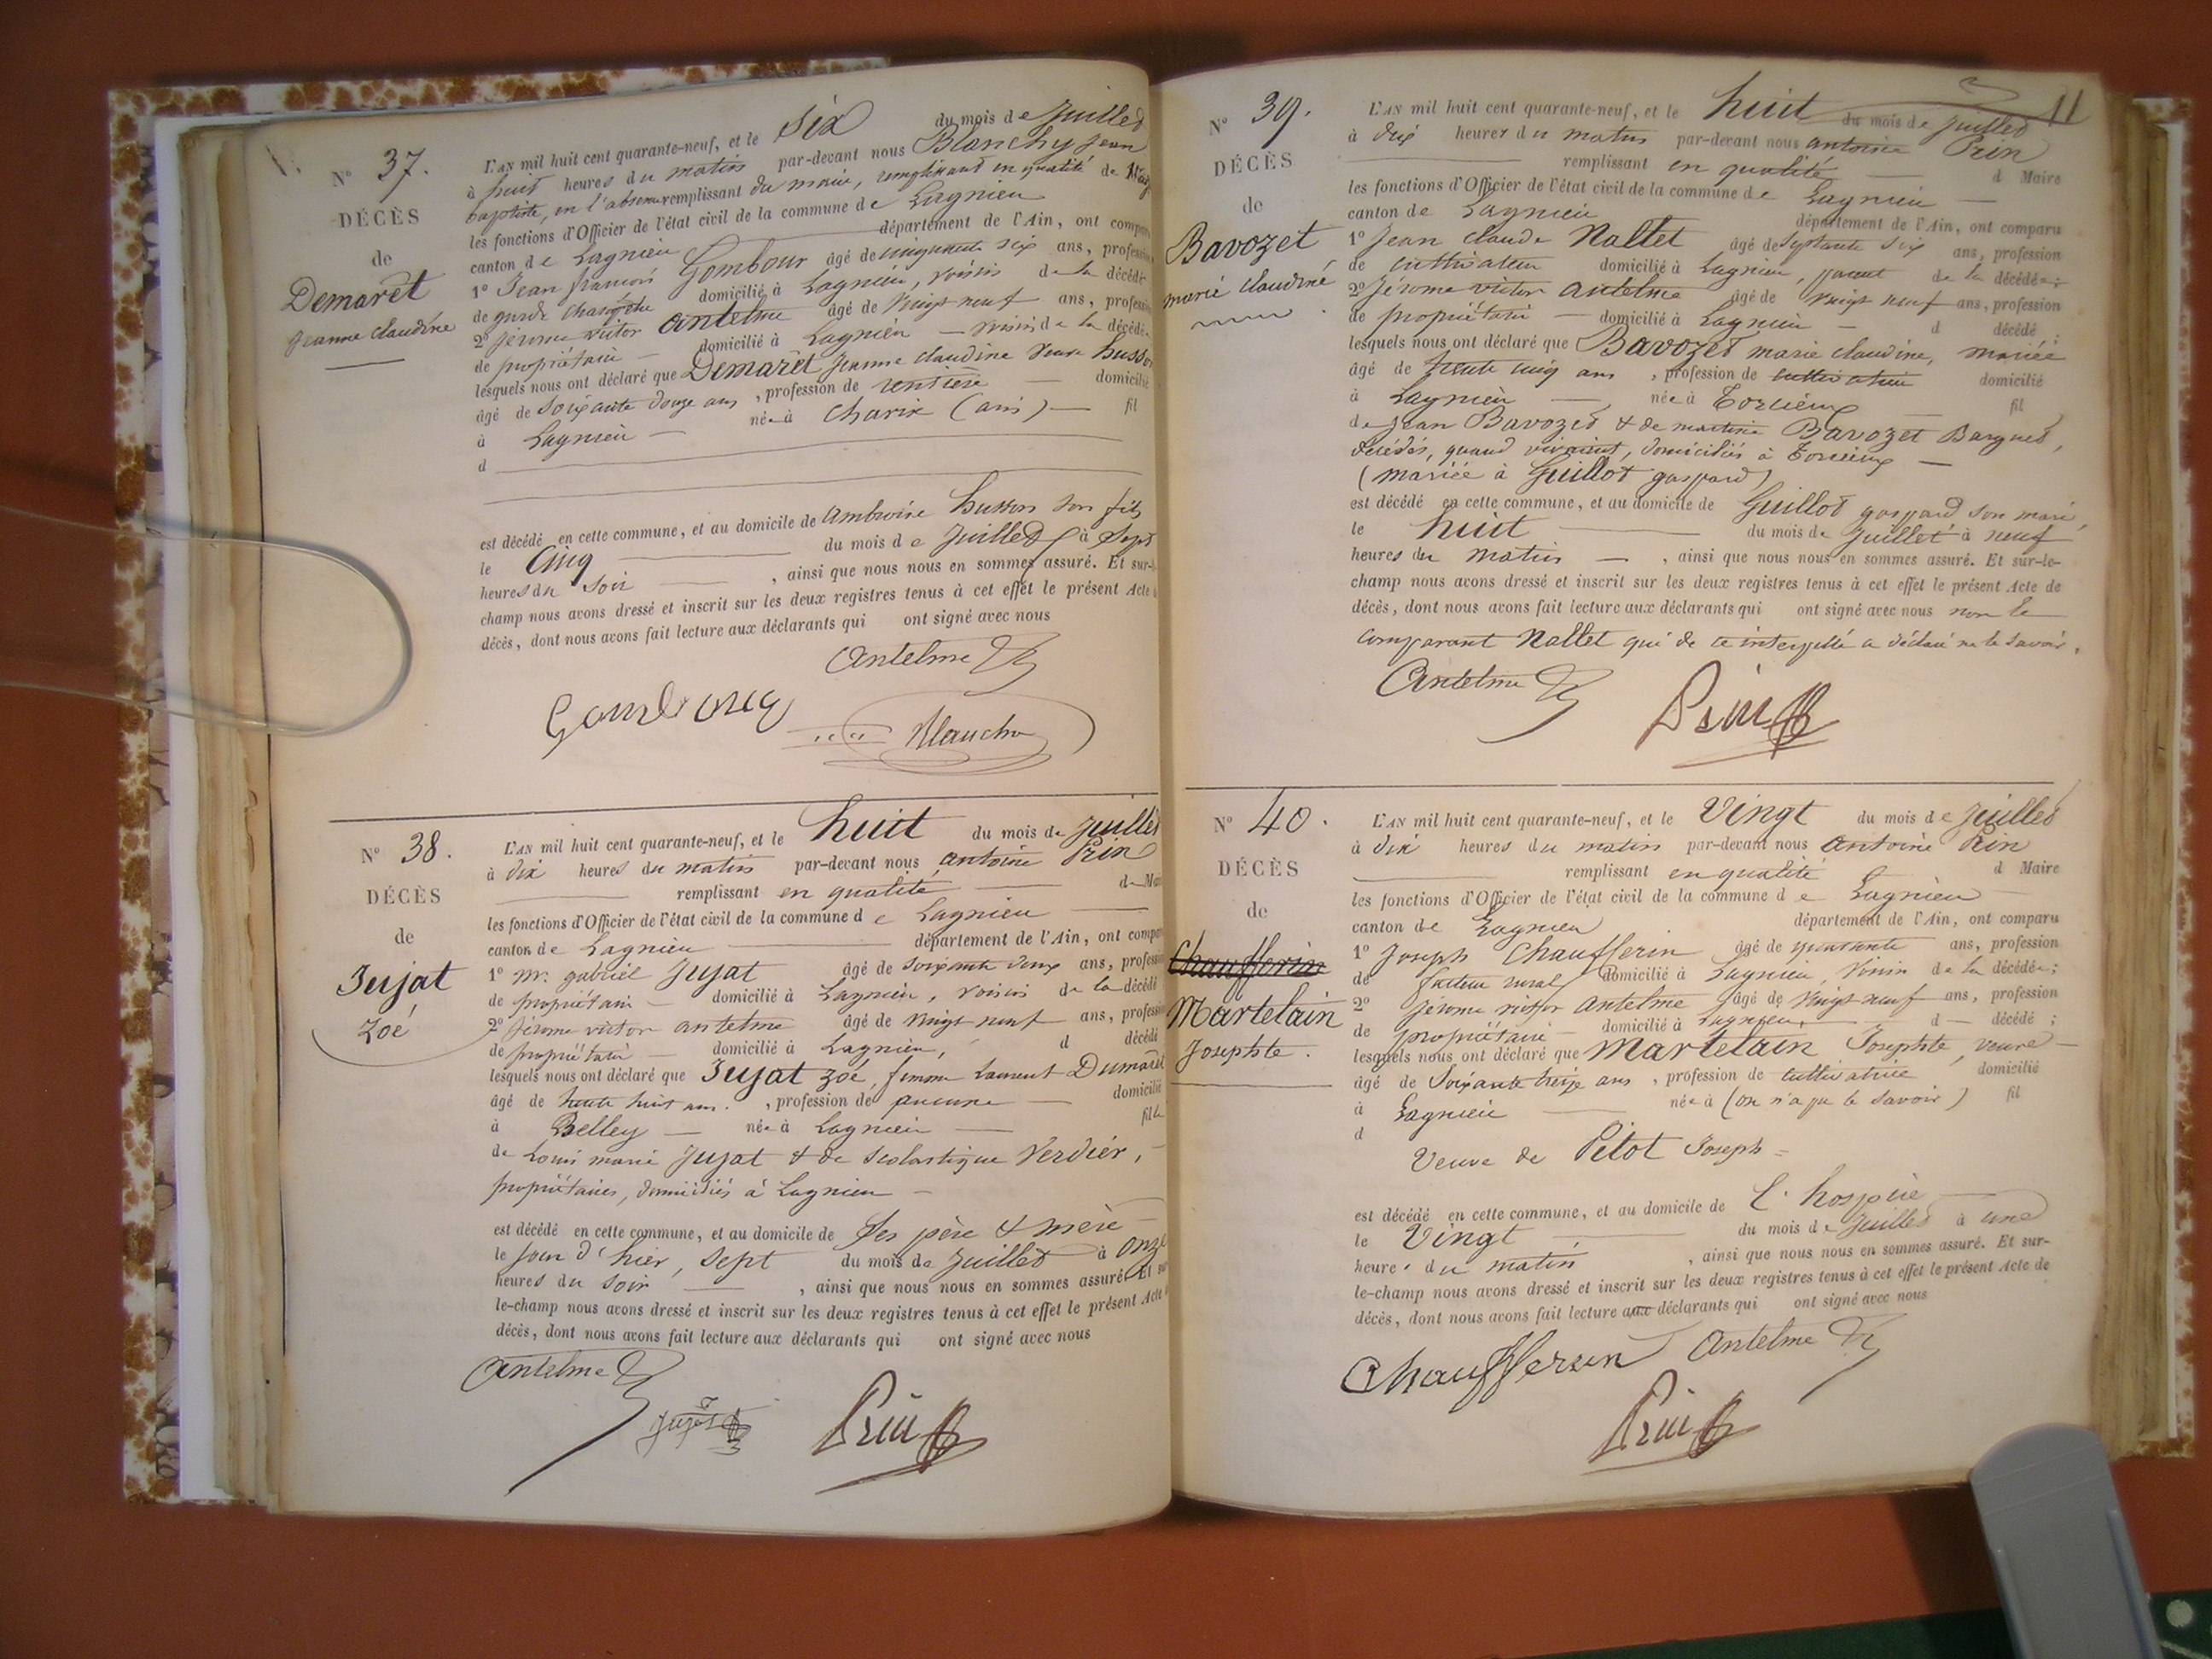 N° 37.
DÉCÈS
de
Demaret
Jeanne Claudine
L'AN mil huit cent quarante-neuf, et le six du mois de juillet
à huit heures du matin par-devant nous Blanchy Jean
baptiste, en l'absence remplissant du maire, remplissant en qualité de
les fonctions d'Officier de l'état civil de la commune de Lagnieu
canton de Lagnieu département de l'Ain, ont comparu
1° Jean françois Gombour âgé de cinquante six ans, profession
de garde champêtre domicilié à Lagnieu, voisin de la décédée
2° Jérome victor antelme âgé de vingt neuf ans, profession
de propriétaire domicilié à Lagnieu voisin de la décédée
lesquels nous ont déclaré que Demaret Jeanne Claudine veuve husson
âgé de soixante douze ans, profession de rentière domicilié
à Lagnieu née à Charix (ain) fil
d
est décédé en cette commune, et au domicile de ambroise husson son fils
le Cinq du mois de juillet à sept
heures du soir, ainsi que nous nous en sommes assuré. Et sur-le-
champ nous avons dressé et inscrit sur les deux registres tenus à cet effet le présent Acte
décès, dont nous avons fait lecture aux déclarants qui ont signé avec nous
Antelme
Gombour
Blanchy
N° 38.
DÉCÈS
de
Jujat
Zoé
L'AN mil huit cent quarante-neuf, et le huit du mois de juillet
à dix heures du matin par-devant nous antoine Prin
remplissant en qualité de Maire
les fonctions d'Officier de l'état civil de la commune de Lagnieu
canton de Lagnieu département de l'Ain, ont comparu
1° Mr. gabriel Jujat âgé de soixante deux ans, profession
de propriétaire domicilié à Lagnieu, voisin de la décédé
2° Jérome victor antelme âgé de vingt neuf ans, profession
de propriétaire domicilié à Lagnieu, d décédé
lesquels nous ont déclaré que Jujat Zoé, femme Laurent Dumaret
âgé de trente huit ans, profession de aucune domicilié
à Belley née à Lagnieu fille
de Louis marie Jujat & de Scolastique Verdier,
propriétaires, domiciliés à Lagnieu
est décédé en cette commune, et au domicile de Ses père & mère
le jour d'hier, sept du mois de juillet à onze
heures du soir, ainsi que nous nous en sommes assuré. Et sur
le-champ nous avons dressé et inscrit sur les deux registres tenus à cet effet le présent Acte
décès, dont nous avons fait lecture aux déclarants qui ont signé avec nous
Antelme
Jujat
Prin
11
N° 39.
DÉCÈS
de
Bavozet
marie claudine
L'AN mil huit cent quarante-neuf, et le huit du mois de juillet
à dix heures du matin par-devant nous antoine Prin
remplissant en qualité d Maire
les fonctions d'Officier de l'état civil de la commune de Lagnieu
canton de Lagnieu département de l'Ain, ont comparu
1° Jean claude Nallet âgé de septante six ans, profession
de cultivateur domicilié à Lagnieu, parent de la décédée;
2° Jérome victor antelme âgé de vingt neuf ans, profession
de propriétaire domicilié à Lagnieu d décédé;
lesquels nous ont déclaré que Bavozet marie claudine, mariée
âgé de trente cinq ans, profession de cultivatrice domicilié
à Lagnieu, née à Torcieux fil
de Jean Bavozet & de martine Bavozet Barquet,
décédés, quand vivaient, domiciliés à Torcieux
(mariée à Guillot gaspard)
est décédé en cette commune, et au domicile de Guillot gaspard son mari,
le huit du mois de juillet à neuf
heures du matin, ainsi que nous nous en sommes assuré. Et sur-le-
champ nous avons dressé et inscrit sur les deux registres tenus à cet effet le présent Acte de
décès, dont nous avons fait lecture aux déclarants qui ont signé avec nous non le
comparant Nallet qui de ce interpellé a déclaré ne le savoir.
Antelme
Prin
N° 40.
DÉCÈS
de
Chaufferin
Martelain
Josephte.
L'AN mil huit cent quarante-neuf, et le Vingt du mois de juillet
à dix heures du matin par-devant nous antoine Prin
remplissant en qualité d Maire
les fonctions d'Officier de l'état civil de la commune de Lagnieu
canton de Lagnieu département de l'Ain, ont comparu
1° Joseph Chaufferin âgé de quarante ans, profession
de facteur rural domicilié à Lagnieu, voisin de la décédée;
2° Jérome victor antelme âgé de vingt neuf ans, profession
de propriétaire domicilié à Lagnieu, d décédé;
lesquels nous ont déclaré que Martelain Josephte, veuve
âgé de soixante treize ans, profession de cultivatrice domicilié
à Lagnieu née à (on n'a pu le savoir) fil
d
Veuve de Pitot Joseph
est décédé en cette commune, et au domicile de L'hospice
le Vingt du mois de juillet à une
heure du matin, ainsi que nous nous en sommes assuré. Et sur-
le-champ nous avons dressé et inscrit sur les deux registres tenus à cet effet le présent Acte de
décès, dont nous avons fait lecture aux déclarants qui ont signé avec nous
Chaufferin Antelme
Prin